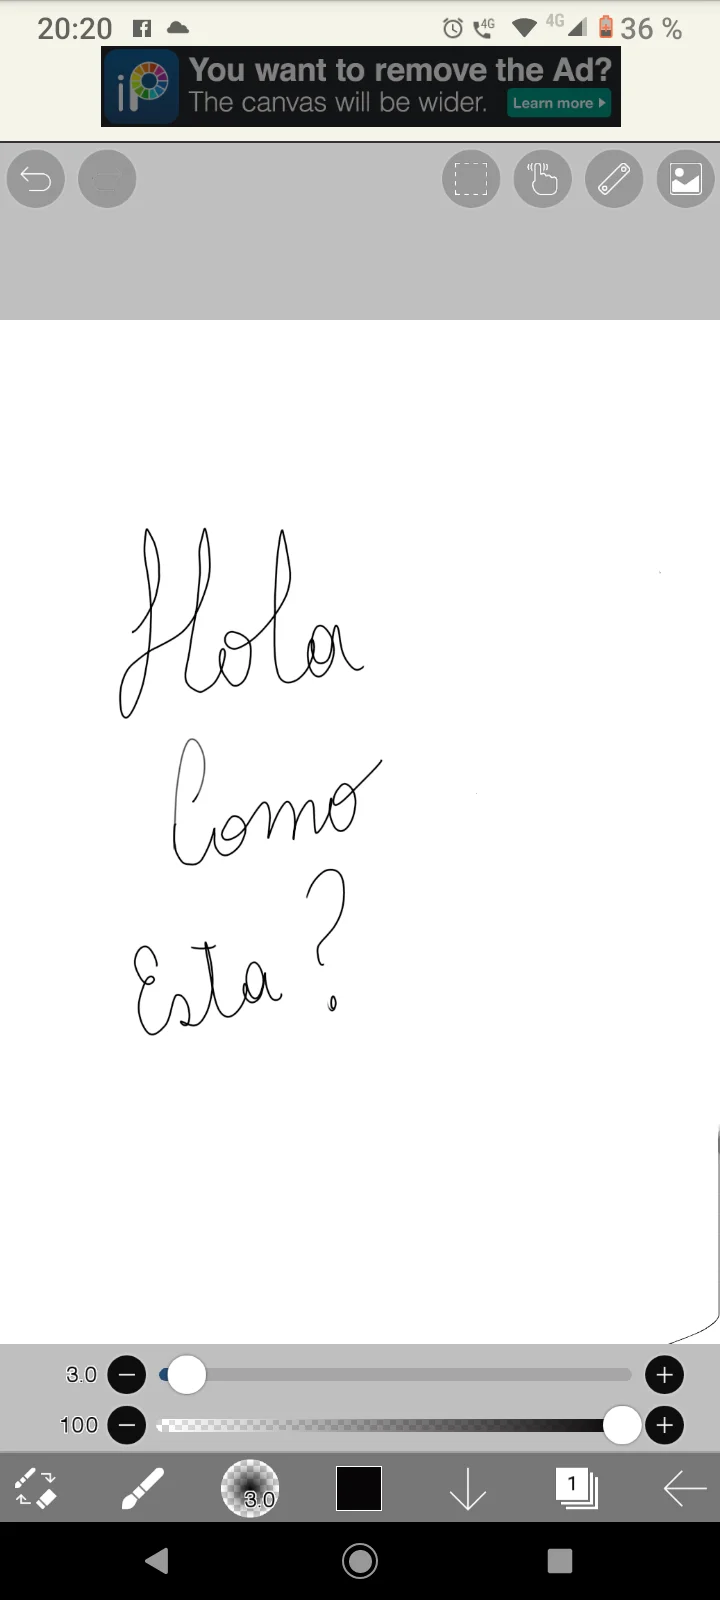 20:20 4G 4G 36 %
iP You want to remove the Ad?
The canvas will be wider. Learn more
Hola
Como
Esta?
3.0
100
3.0 1